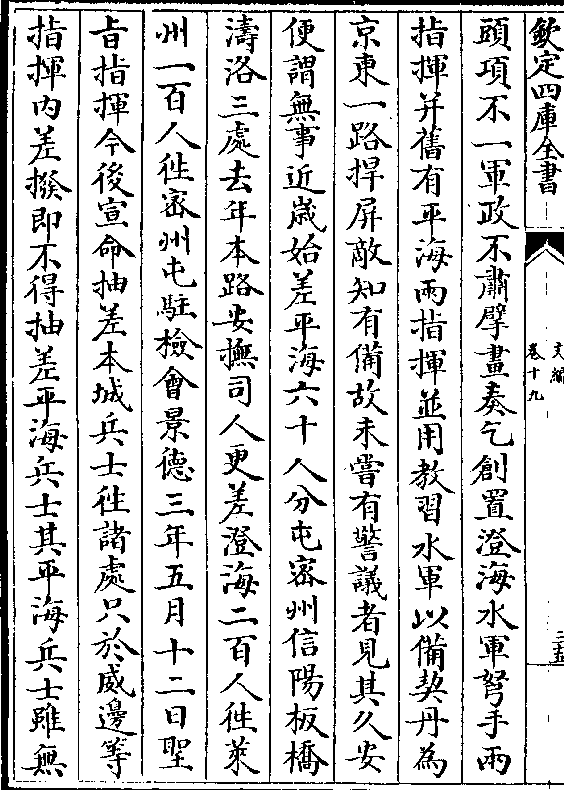 欽定四庫全書
文編
卷十九
三五
頭項不一軍政不肅擘畫奏乞創置澄海水軍弩手兩
指揮并舊有平海兩指揮並用教習水軍以備契丹為
京東一路捍屏敵知有備故未嘗有警議者見其久安
便謂無事近歲始差平海六十人分屯密州信陽板橋
濤洛三處去年本路安撫司人更差澄海二百人徃萊
州一百人徃密州屯駐檢會景德三年五月十二日聖
旨指揮今後宣命抽差本城兵士徃諸處只於威邊等
指揮内差撥即不得抽差平海兵士其平海兵士雖無